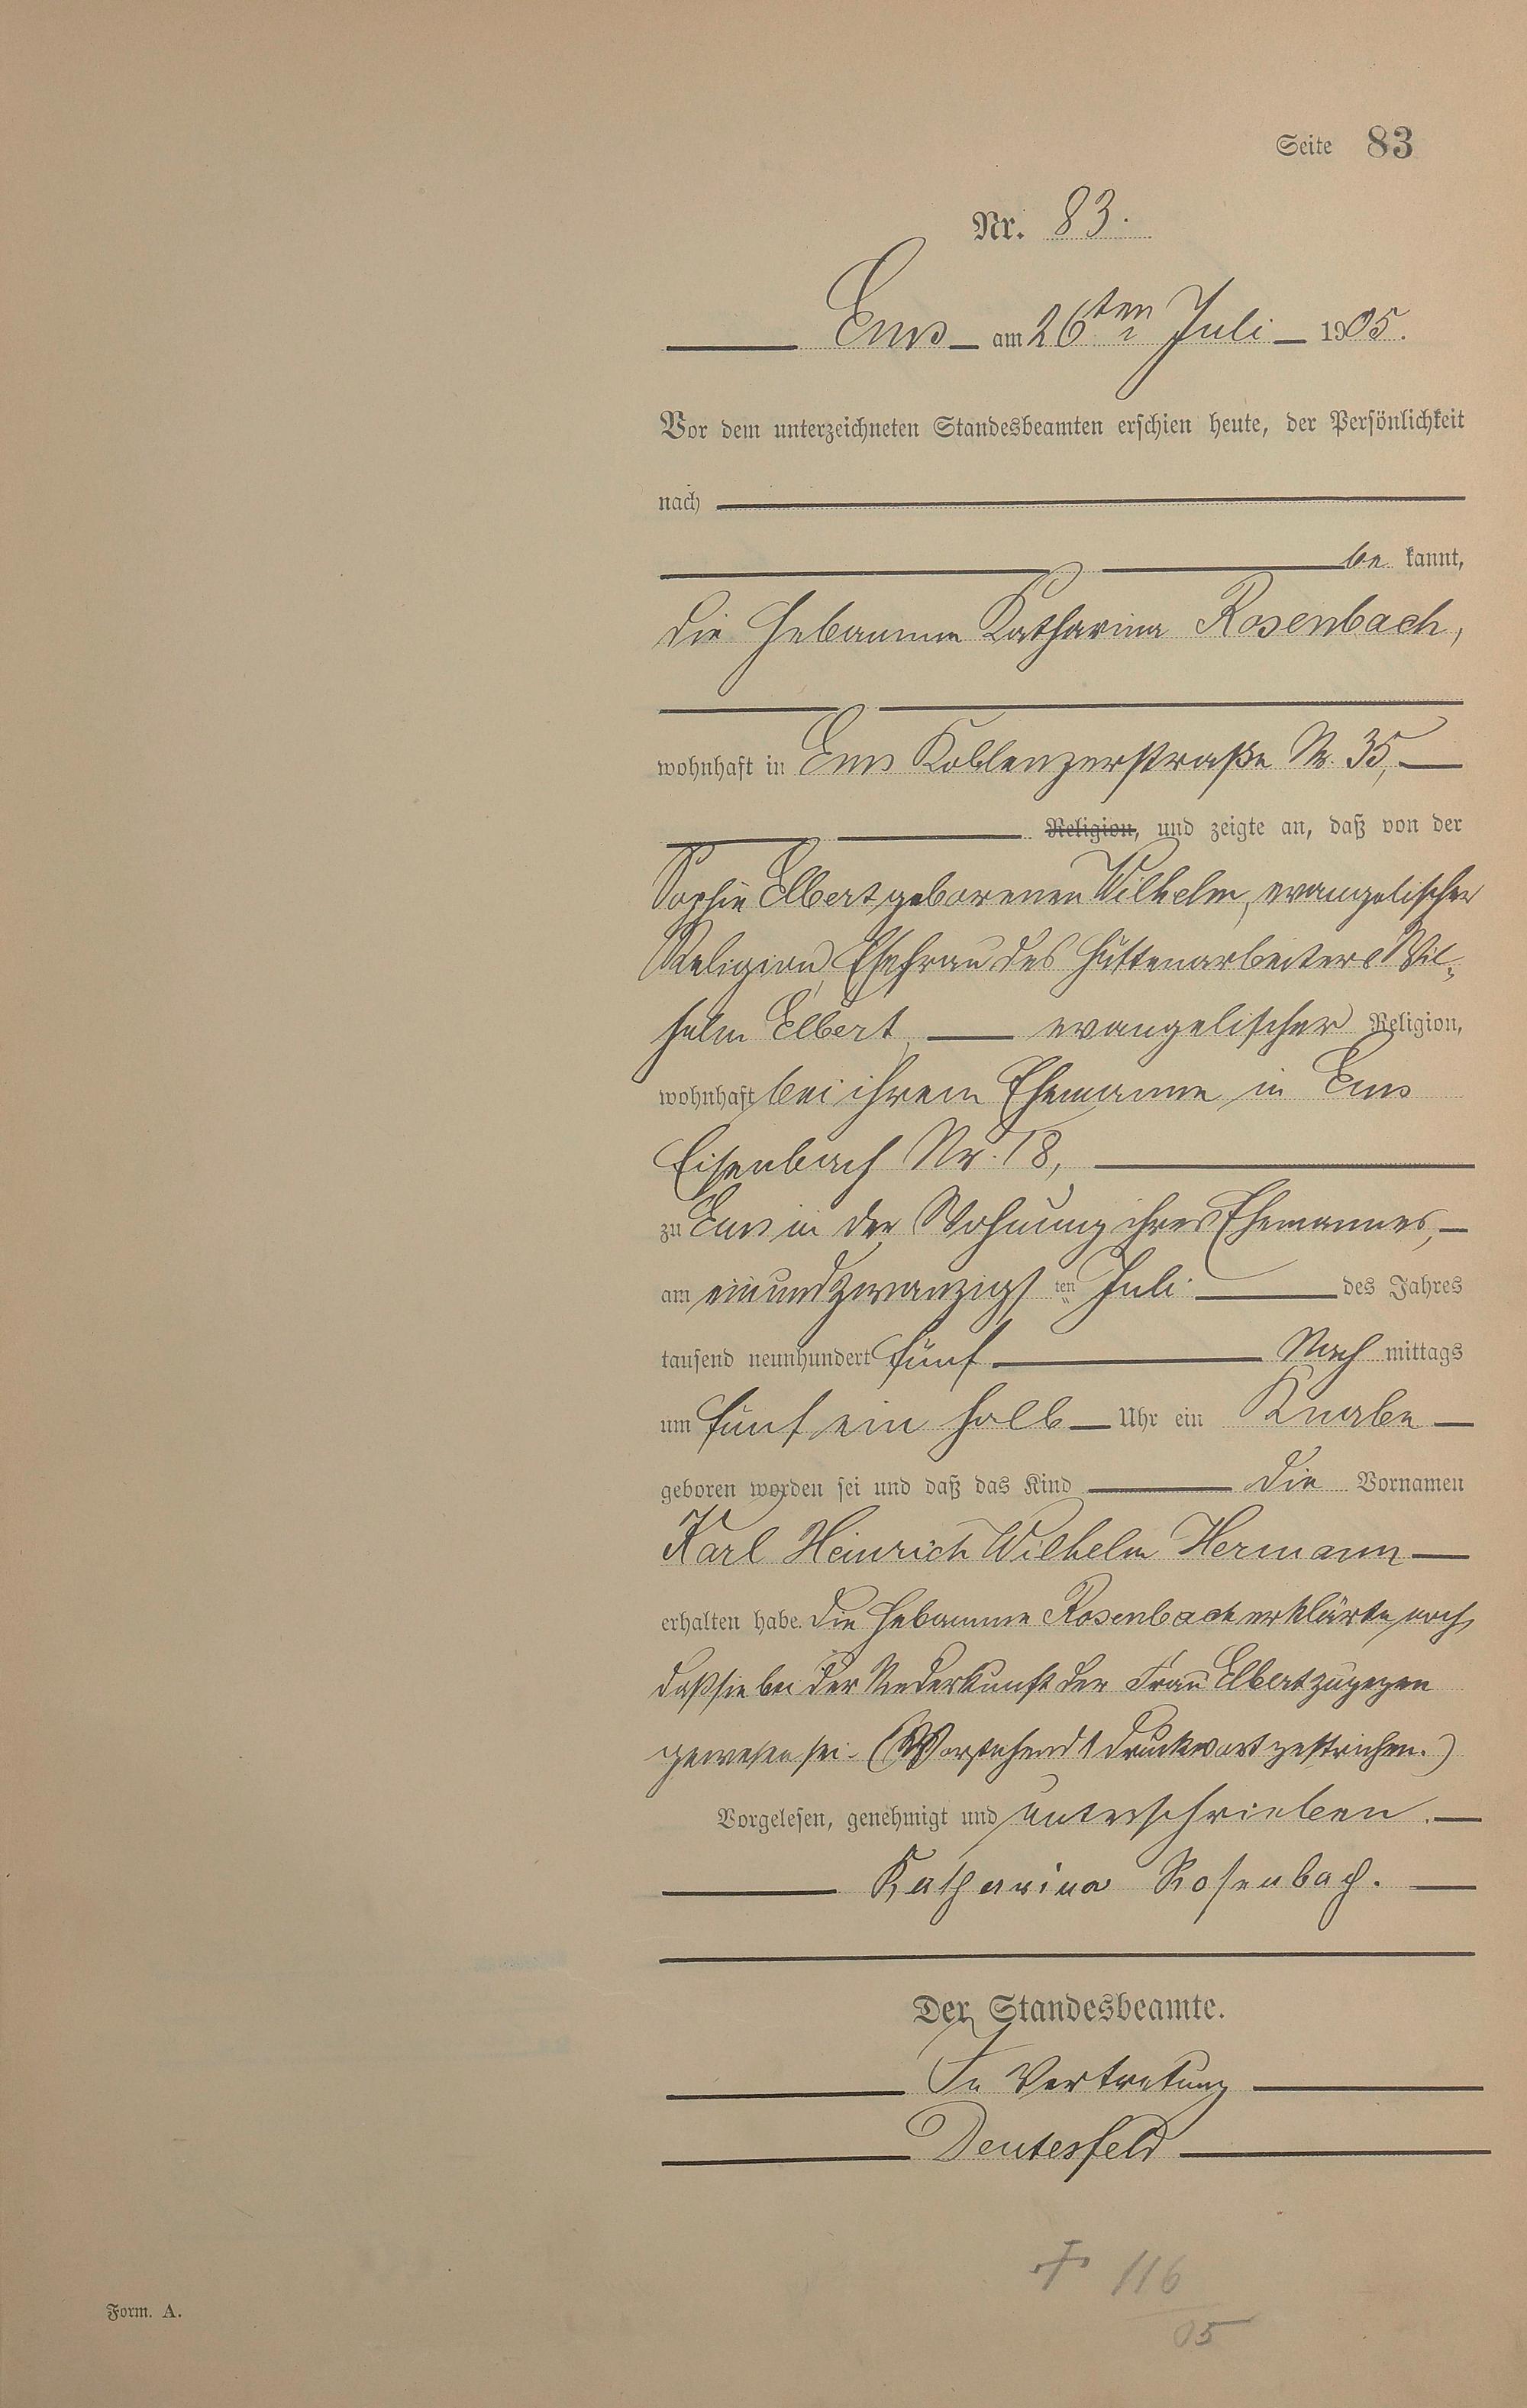 Seite 83
Nr. 83.
Ems am 26ten Juli 1905.
Vor dem unterzeichneten Standesbeamten erschien heute, der Persönlichkeit
nach
be kannt,
die Hebamme Katharina Rosenbach,
wohnhaft in Ems Koblenzerstraße Nr. 35,
Religion, und zeigte an, daß von der
Sophie Elbert geborenen Wilhelm, evangelischer
Religion, Ehefrau des Hüttenarbeiters Wil-
helm Elbert, evangelischer Religion,
wohnhaft bei ihrem Ehemanne in Ems
Eisenbach Nr. 18,
zu Ems in der Wohnung ihres Ehemannes,
am einundzwanzigsten Juli des Jahres
tausend neunhundert fünf Nach mittags
um fünf ein halb Uhr ein Knabe
geboren worden sei und daß das Kind die Vornamen
Karl Heinrich Wilhelm Hermann
erhalten habe. Die Hebamme Rosenbach erklärte noch,
daß sie bei der Niederkunft der Frau Elbert zugegen
gewesen sei. (Vorstehend 1 Druckwort gestrichen.)
Vorgelesen, genehmigt und unterschrieben.
Katharina Rosenbach.
Der Standesbeamte.
In Vertretung
Deutesfeld
† 116
05
Form. A.